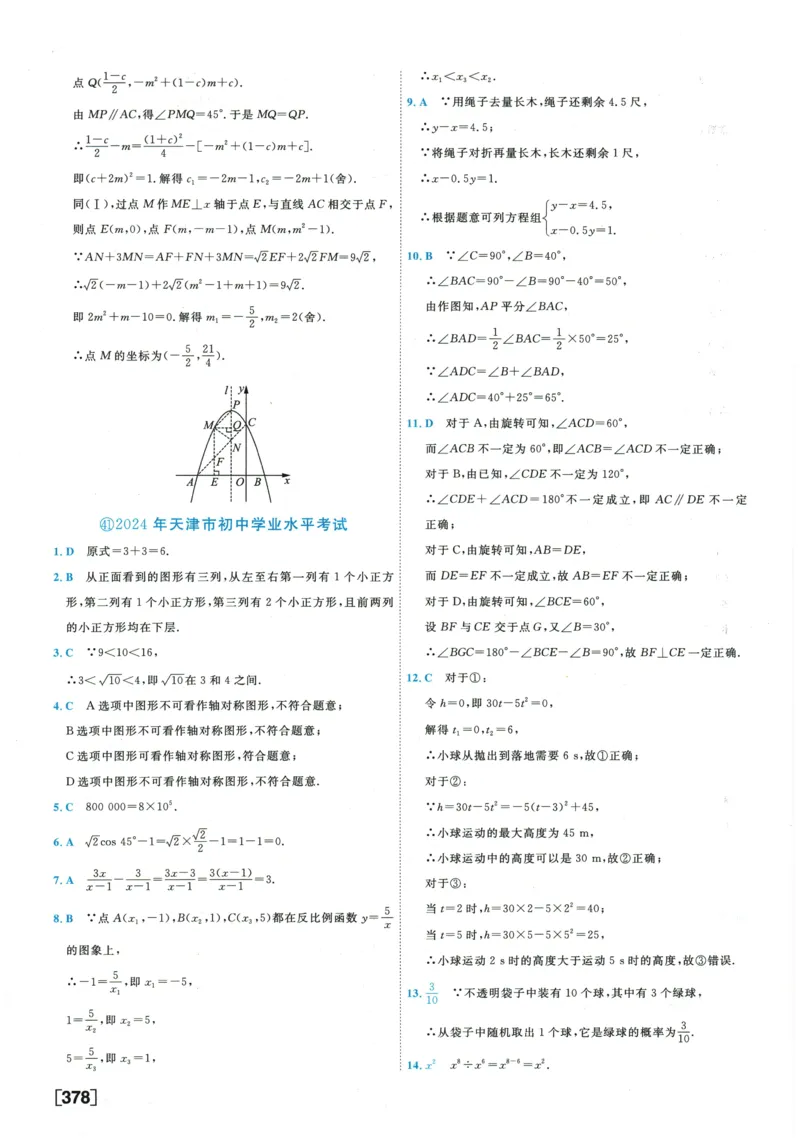 点 Q(\frac{1-c}{2},-m²+(1-c)m+c).
由 MP∥AC,得∠PMQ=45°.于是 MQ=QP.
∴\frac{1-c}{2}-m=\frac{(1+c)²}{4}-[-m²+(1-c)m+c].
即(c+2m)²=1.解得 c₁=-2m-1,c₂=-2m+1(舍).
同(Ⅰ),过点 M 作 ME⊥x 轴于点 E,与直线 AC 相交于点 F,
则点 E(m,0),点 F(m,-m-1),点 M(m,m²-1).
∵AN+3MN=AF+FN+3MN=√2EF+2√2FM=9√2,
∴√2(-m-1)+2√2(m²-1+m+1)=9√2.
即 2m²+m-10=0.解得 m₁=-\frac{5}{2},m₂=2(舍).
∴点 M 的坐标为(-\frac{5}{2},\frac{21}{4}).
l y
P
M Q C
N
F
A E O B x
㊶2024 年天津市初中学业水平考试
1. D 原式=3+3=6.
2. B 从正面看到的图形有三列,从左至右第一列有 1 个小正方
形,第二列有 1 个小正方形,第三列有 2 个小正方形,且前两列
的小正方形均在下层.
3. C ∵9<10<16,
∴3<√10<4,即√10在 3 和 4 之间.
4. C A 选项中图形不可看作轴对称图形,不符合题意;
B 选项中图形不可看作轴对称图形,不符合题意;
C 选项中图形可看作轴对称图形,符合题意;
D 选项中图形不可看作轴对称图形,不符合题意.
5. C 800 000=8×10⁵.
6. A √2cos 45°-1=√2×\frac{√2}{2}-1=1-1=0.
7. A \frac{3x}{x-1}-\frac{3}{x-1}=\frac{3x-3}{x-1}=\frac{3(x-1)}{x-1}=3.
8. B ∵点 A(x₁,-1),B(x₂,1),C(x₃,5)都在反比例函数 y=\frac{5}{x}
的图象上,
∴-1=\frac{5}{x₁},即 x₁=-5,
1=\frac{5}{x₂},即 x₂=5,
5=\frac{5}{x₃},即 x₃=1,
[378]
∴x₁<x₃<x₂.
9. A ∵用绳子去量长木,绳子还剩余 4.5 尺,
∴y-x=4.5;
∵将绳子对折再量长木,长木还剩余 1 尺,
∴x-0.5y=1.
∴根据题意可列方程组{y-x=4.5,
x-0.5y=1.
10. B ∵∠C=90°,∠B=40°,
∴∠BAC=90°-∠B=90°-40°=50°,
由作图知,AP 平分∠BAC,
∴∠BAD=\frac{1}{2}∠BAC=\frac{1}{2}×50°=25°,
∵∠ADC=∠B+∠BAD,
∴∠ADC=40°+25°=65°.
11. D 对于 A,由旋转可知,∠ACD=60°,
而∠ACB 不一定为 60°,即∠ACB=∠ACD 不一定正确;
对于 B,由已知,∠CDE 不一定为 120°,
∴∠CDE+∠ACD=180°不一定成立,即 AC∥DE 不一定
正确;
对于 C,由旋转可知,AB=DE,
而 DE=EF 不一定成立,故 AB=EF 不一定正确;
对于 D,由旋转可知,∠BCE=60°,
设 BF 与 CE 交于点 G,又∠B=30°,
∴∠BGC=180°-∠BCE-∠B=90°,故 BF⊥CE 一定正确.
12. C 对于①:
令 h=0,即 30t-5t²=0,
解得 t₁=0,t₂=6,
∴小球从抛出到落地需要 6 s,故①正确;
对于②:
∵h=30t-5t²=-5(t-3)²+45,
∴小球运动的最大高度为 45 m,
∴小球运动中的高度可以是 30 m,故②正确;
对于③:
当 t=2 时,h=30×2-5×2²=40;
当 t=5 时,h=30×5-5×5²=25,
∴小球运动 2 s时的高度大于运动 5 s时的高度,故③错误.
13. \frac{3}{10} ∵不透明袋子中装有 10 个球,其中有 3 个绿球,
∴从袋子中随机取出 1 个球,它是绿球的概率为\frac{3}{10}.
14. x² x⁸÷x⁶=x⁸⁻⁶=x².